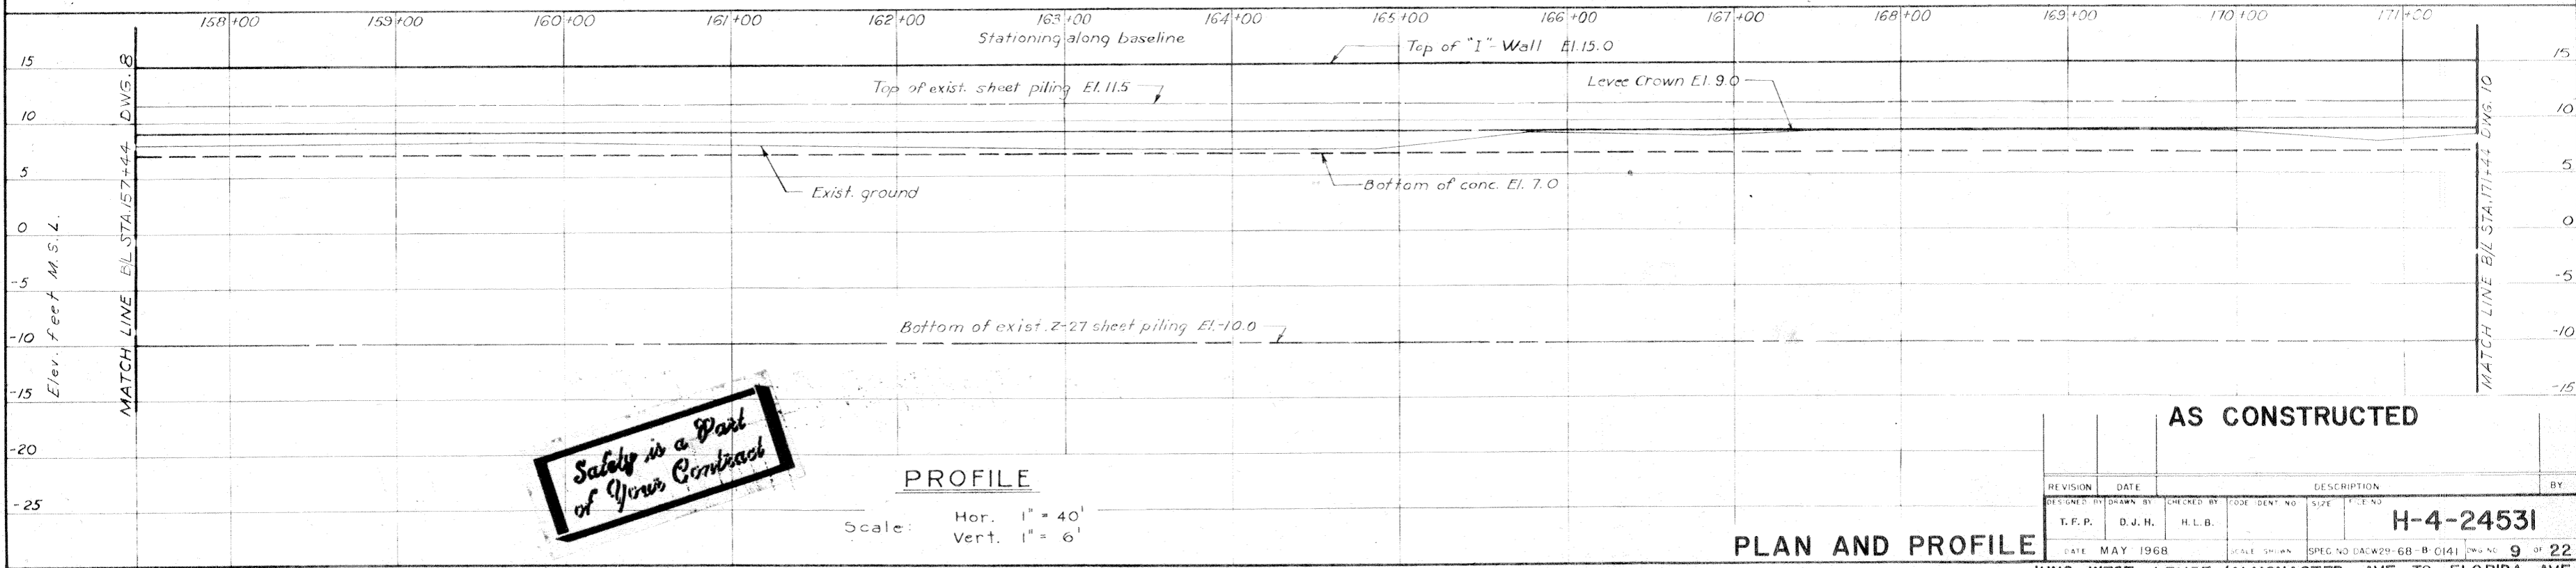 158+00 159+00 160+00 161+00 162+00 163+00 164+00 165+00 166+00 167+00 168+00 169+00 170+00 171+00
Stationing along baseline
Top of "I"-Wall El.15.0
15 15
Top of exist. sheet piling El. 11.5
Levee Crown El. 9.0
10 10
Exist. ground
Bottom of conc. El. 7.0
5 5
0 0
-5 -5
Bottom of exist. Z-27 sheet piling El.-10.0
-10 -10
-15 -15
-20
-25
Elev. feet M.S.L.
MATCH LINE B/L STA.157+44 DWG. 8
MATCH LINE B/L STA.171+44 DWG. 10
Safety is a Part
of Your Contract
PROFILE
Scale: Hor. 1" = 40'
Vert. 1" = 6'
AS CONSTRUCTED
REVISION DATE DESCRIPTION BY
DESIGNED BY DRAWN BY CHECKED BY CODE IDENT NO SIZE FILE NO
T.F.P. D.J.H. H.L.B. H-4-24531
DATE MAY 1968 SCALE SHOWN SPEC NO DACW29-68-B-0141 DWG NO 9 OF 22
PLAN AND PROFILE